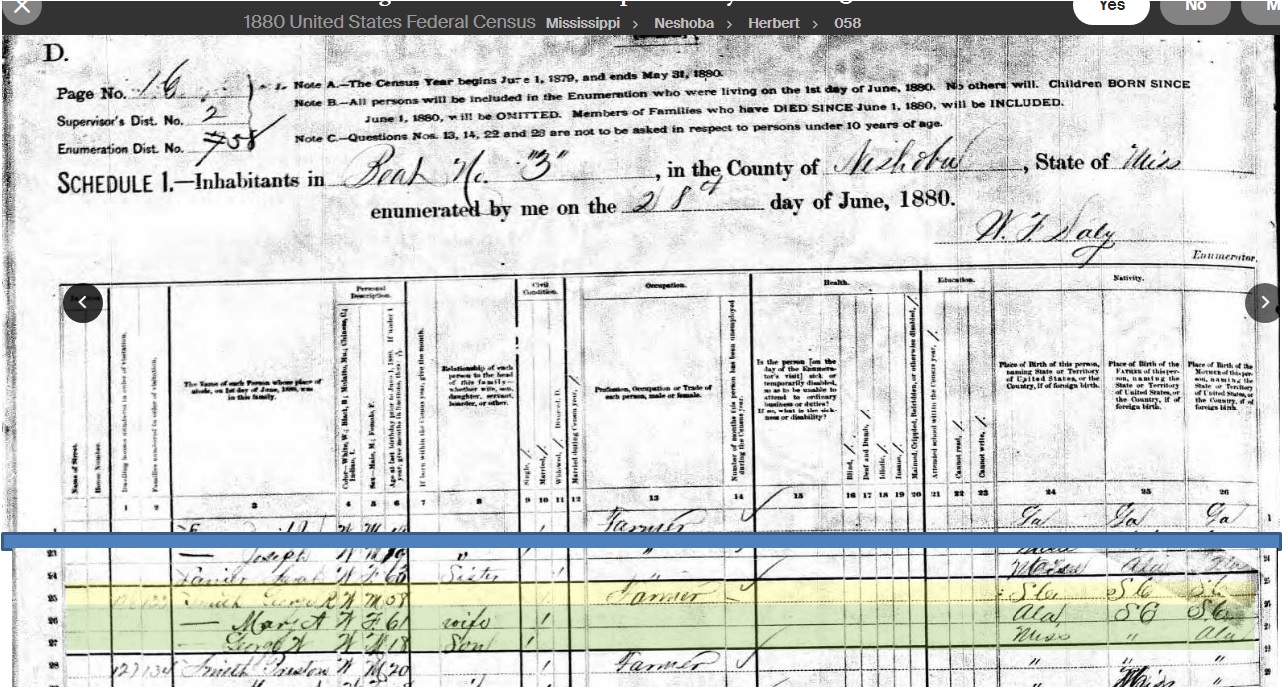 1880 United States Federal Census Mississippi > Neshoba > Herbert > 058
Yes No
D.
Page No. 16
Supervisor's Dist. No. 2
Enumeration Dist. No. 758
Note A.—The Census Year begins June 1, 1879, and ends May 31, 1880.
Note B.—All persons will be included in the Enumeration who were living on the 1st day of June, 1880. No others will. Children BORN SINCE
June 1, 1880, will be OMITTED. Members of Families who have DIED SINCE June 1, 1880, will be INCLUDED.
Note C.—Questions Nos. 13, 14, 22 and 23 are not to be asked in respect to persons under 10 years of age.
SCHEDULE 1.—Inhabitants in Beat No. "3", in the County of Neshoba, State of Miss
enumerated by me on the 28th day of June, 1880.
Enumerator.
Personal Description. Civil Condition. Occupation. Health. Education. Nativity.
Name of Street.
House Number.
Dwelling houses numbered in order of visitation.
Families numbered in order of visitation.
The Name of each Person whose place of abode, on 1st day of June, 1880, was in this family.
Color—White, W; Black, B; Mulatto, Mu; Chinese, C; Indian, I.
Sex—Male, M; Female, F.
Age at last birthday prior to June 1, 1880. If under 1 year, give months in fractions, thus
If born within the Census year, give the month.
Relationship of each person to the head of this family—whether wife, son, daughter, servant, boarder, or other.
Single, /
Married, /
Widowed, / Divorced, D.
Married during Census year, /
Profession, Occupation or Trade of each person, male or female.
Number of months this person has been unemployed during the Census Year.
Is the person [on the day of the Enumerator's visit] sick or temporarily disabled, so as to be unable to attend to ordinary business or duties? If so, what is the sickness or disability?
Blind, /
Deaf and Dumb, /
Idiotic, /
Insane, /
Maimed, Crippled, Bedridden, or otherwise disabled, /
Attended school within the Census year, /
Cannot read, /
Cannot write, /
Place of Birth of this person, naming State or Territory of United States, or the Country, if of foreign birth.
Place of Birth of the FATHER of this person, naming the State or Territory of United States, or the Country, if of foreign birth.
Place of Birth of the MOTHER of this person, naming the State or Territory of United States, or the Country, if of foreign birth.
1 2 3 4 5 6 7 8 9 10 11 12 13 14 15 16 17 18 19 20 21 22 23 24 25 26
W M / Farmer Ga Ga Ga 1
23 — Joseph W M 19 " "
24 W F 60 Sister " Ala
25 Smith George R W M 58 Farmer S C S C S C
26 — Mary A W F 61 wife / Ala S C S C
27 — George W W M 18 Son / Miss " Ala
28 127 134 Smith Preston W M 20 / Farmer " " "